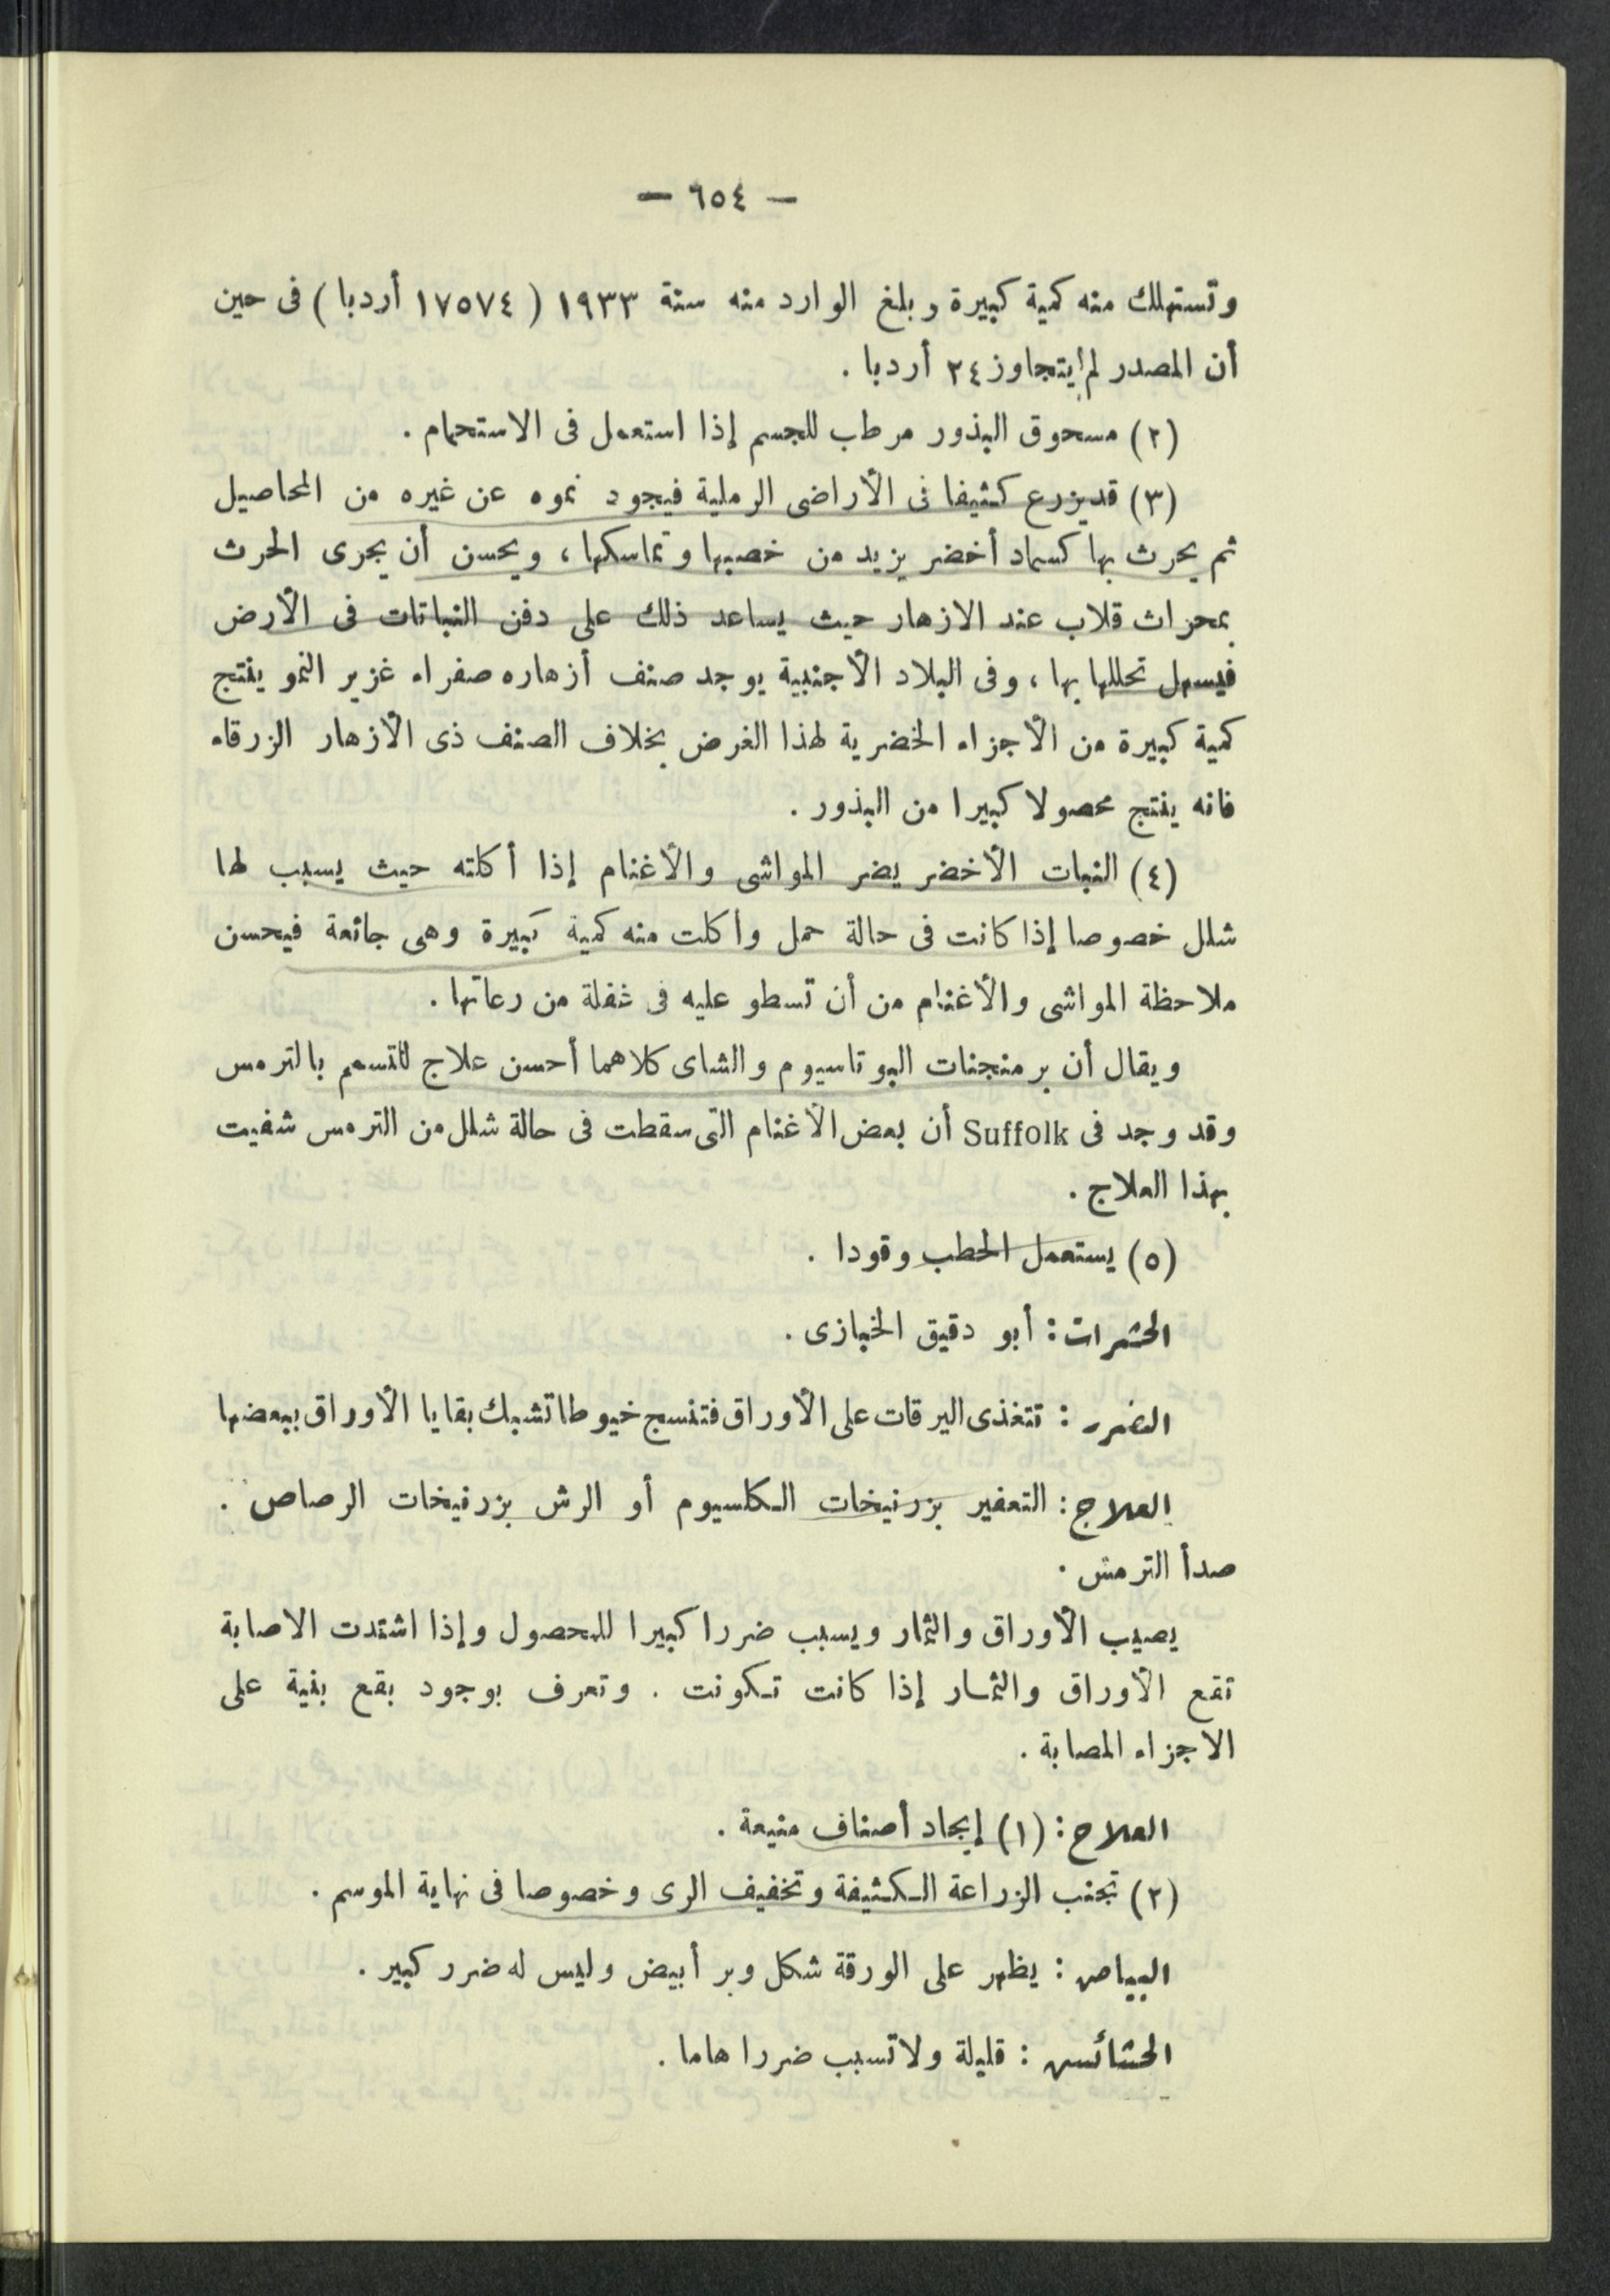 — ٦٥٤ —
وتستهلك منه كمية كبيرة وبلغ الوارد منه سنة ١٩٣٣ ( ١٧٥٧٤ أردبا ) فى حين
أن المصدر لم يتجاوز ٢٤ أردبا .
(٢) مسحوق البذور مرطب للجسم إذا استعمل فى الاستحمام .
(٣) قد يزرع كثيفا فى الأراضى الرملية فيجود نموه عن غيره من المحاصيل
ثم يحرث بها كسماد أخضر يزيد من خصبها وتماسكها ، ويحسن أن يجرى الحرث
بمحراث قلاب عند الازهار حيث يساعد ذلك على دفن النباتات فى الأرض
فيسهل تحللها بها ، وفى البلاد الأجنبية يوجد صنف أزهاره صفراء غزير النمو ينتج
كمية كبيرة من الأجزاء الخضرية لهذا الغرض بخلاف الصنف ذى الأزهار الزرقاء
فانه ينتج محصولا كبيرا من البذور .
(٤) النبات الأخضر يضر المواشى والأغنام إذا أكلته حيث يسبب لها
شلل خصوصا إذا كانت فى حالة حمل وأكلت منه كمية كبيرة وهى جائعة فيحسن
ملاحظة المواشى والأغنام من أن تسطو عليه فى غفلة من رعاتها .
ويقال أن برمنجنات البوتاسيوم والشاى كلاهما أحسن علاج للتسمم بالترمس
وقد وجد فى Suffolk أن بعض الأغنام التى سقطت فى حالة شلل من الترمس شفيت
بهذا العلاج .
(٥) يستعمل الحطب وقودا .
الحشرات : أبو دقيق الخبازى .
الضرر : تتغذى اليرقات على الأوراق فتنسج خيوطا تشبك بقايا الأوراق ببعضها
العلاج : التعفير بزرنيخات الكلسيوم أو الرش بزرنيخات الرصاص .
صدأ الترمس .
يصيب الأوراق والثمار ويسبب ضررا كبيرا للمحصول وإذا اشتدت الاصابة
تقع الأوراق والثمار إذا كانت تكونت . وتعرف بوجود بقع بنية على
الاجزاء المصابة .
العلاج : (١) إيجاد أصناف منيعة .
(٢) تجنب الزراعة الكثيفة وتخفيف الرى وخصوصا فى نهاية الموسم .
البياض : يظهر على الورقة شكل وبر أبيض وليس له ضرر كبير .
الحشائش : قليلة ولا تسبب ضررا هاما .